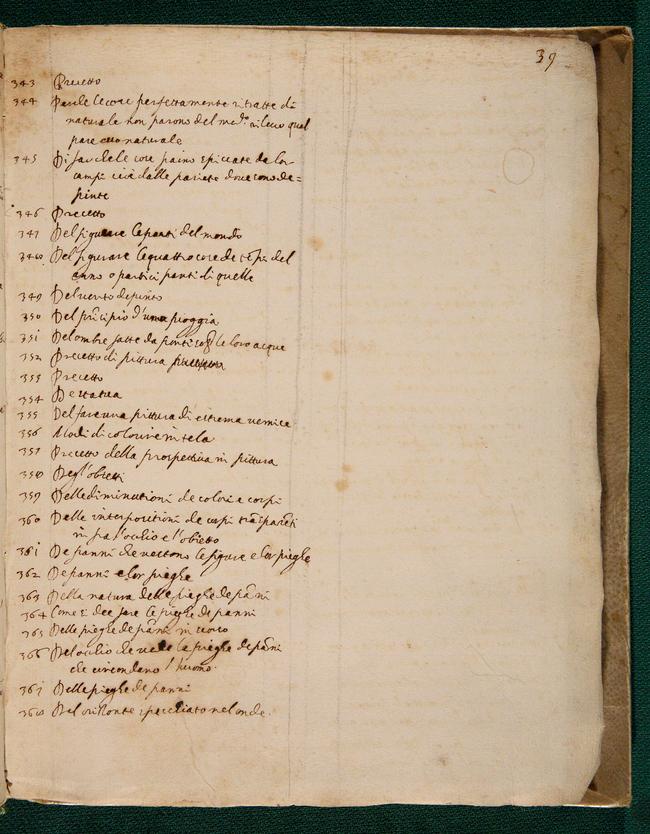 39
343 Precetto
344 Perche le cose perfettamente ritratte di
naturale non parono del med.o rilevo qual
pare esso naturale
345 Di far che le cose paino spiccate da lor
campi cioè dalle pariete dove sono de=
pinte
346 Precetto
347 Del figurare le parti del mondo
348 Del figurare le quattro cose de tẽpi del
anno o partici panti di quelle
349 Del vento depinto
350 Del prĩcipio d'una pioggia
351 Del ombre fatte da ponti le loro acque
352 Precetto di pittura
353 Precetto
354 De statua
355 Del fare una pittura di estrema vernice
356 Modi di colorire in tela
357 Precetto della prospectiva in pittura
358 Degl'obietti
359 Delle diminutioni de colori e corpi
360 Delle interpositioni de corpi trãsparẽti
in fra l'occhio e l'obietto
361 De panni che vestono le figure e lor pieghe
362 De panni e lor pieghe
363 Della natura delle pieghe de pãni
364 Come si dee fare le pieghe de panni
365 Delle pieghe de pãni in scorto
366 Del ochio che vede le pieghe de pãni
che circondano l'huomo.
367 Delle pieghe de panni
368 Del orizonte specchiato nel onde.